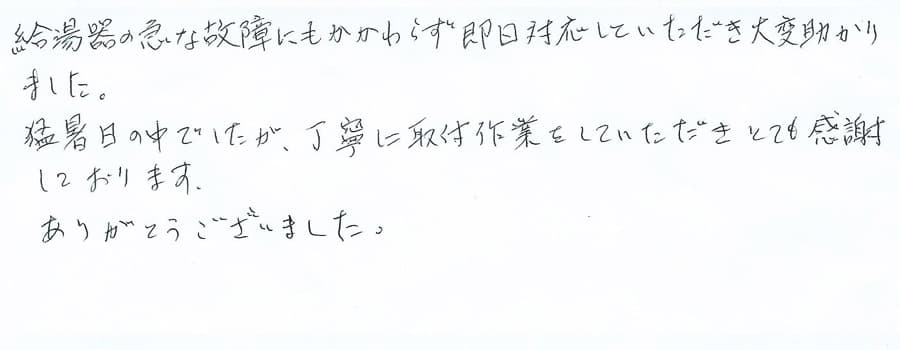 給湯器の急な故障にもかかわらず即日対応していただき大変助かり
ました。
猛暑日の中でしたが、丁寧に取付作業をしていただきとても感謝
しております。
ありがとうございました。